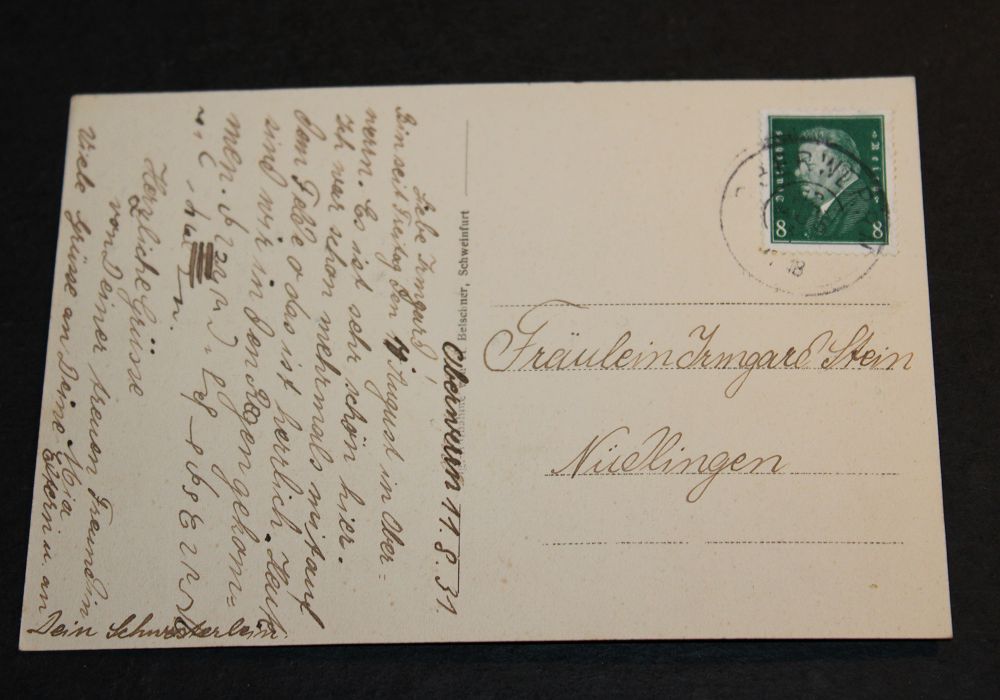 Oberwerrn 11.8.31
Liebe Irmgard!
Bin seit Freitag den 7. August in Ober=
werrn. Es ist sehr schön hier.
Ich war schon mehrmals mit auf
dem Felde o das ist herrlich. Heute
sind wir in den Regen gekom=
men.
Herzliche Grüsse
von Deiner treuen Freundin
Mia
Viele Grüsse an Deine Eltern u. an
Dein Schwesterlein.
Belschner, Schweinfurt
Fräulein Irmgard Stein
Nüdlingen
Deutsches Reich
8 8